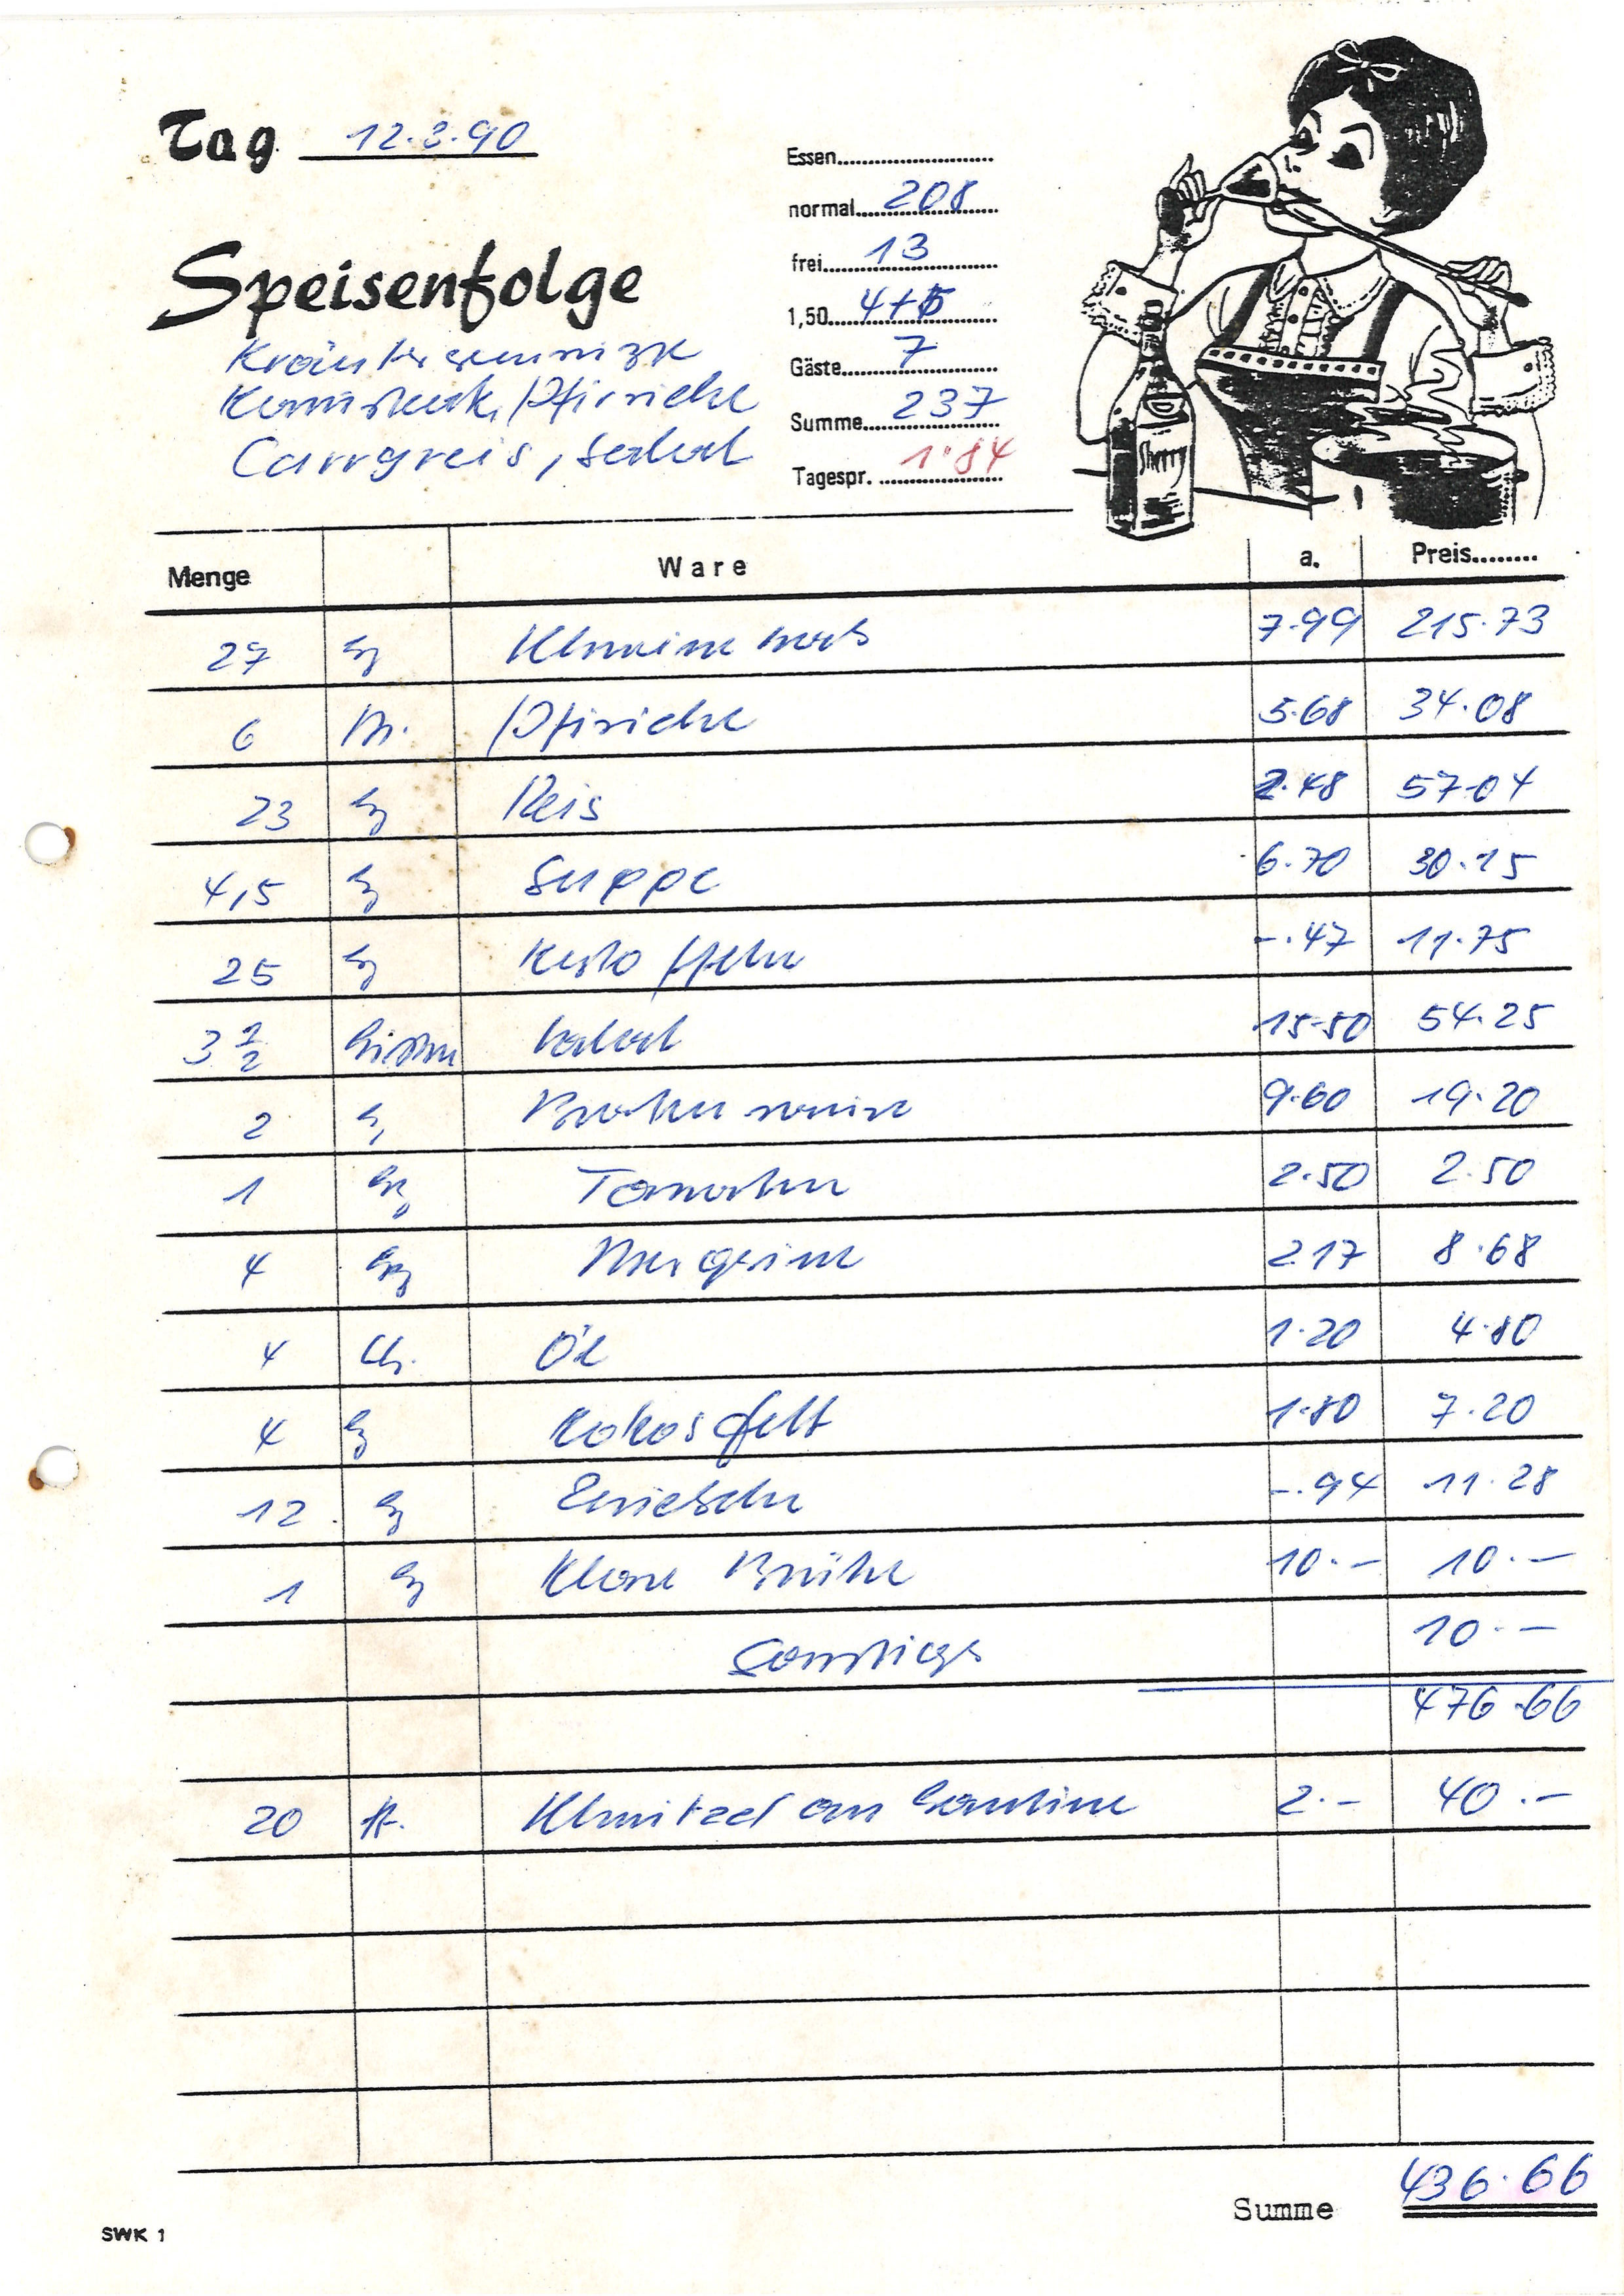 Tag 12.3.90
Essen
normal 208
frei 13
1,50 4+5
Gäste 7
Summe 237
Tagespr. 1.84
Speisenfolge
Pfirsiche
Curryreis, Salat
Sherry
Menge Ware a. Preis
27 kg 7.99 215.73
6 Pfirsiche 5.68 34.08
23 kg Reis 2.48 57.04
4,5 kg Suppe 6.70 30.15
25 kg Kartoffeln -.47 11.75
3 1/2 Kisten Salat 15.50 54.25
2 kg Bratensauce 9.60 19.20
1 kg Tomaten 2.50 2.50
4 kg Margarine 2.17 8.68
4 Öl 1.20 4.80
4 kg Kokosfett 1.80 7.20
12 kg Zwiebeln -.94 11.28
1 kg Klare Brühe 10.- 10.-
Sonstiges 10.-
476.66
20 St. Schnitzel an Kantine 2.- 40.-
Summe 436.66
SWK 1